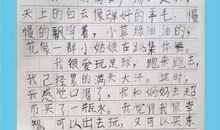 天上的白云像弹好的羊毛，慢
慢的飘浮着，小草绿油油的，
花像一群小姑娘在跳集体舞。
我很爱玩足球，跑来跑去，
我已经是满头大汗。这时，
我感觉口渴了，我和妈妈去超
市买了一瓶水。我觉得我很幸
，可以出去玩，又可以买东